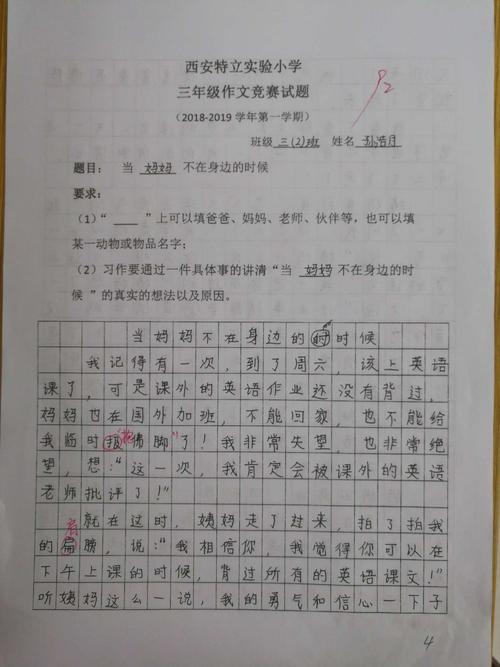 西安特立实验小学
三年级作文竞赛试题
92
（2018-2019 学年第一学期）
班级 三(2)班 姓名 孙浩月
题目： 当 妈妈 不在身边的时候
要求：
（1）“ ____ ”上可以填爸爸、妈妈、老师、伙伴等，也可以填
某一动物或物品名字；
（2）习作要通过一件具体事的讲清“当 妈妈 不在身边的时
候 ”的真实的想法以及原因。
当妈妈不在身边的时时候
我记得有一次，到了周六，该上英语
课了，可是课外的英语作业还没有背过，
妈妈也在国外加班，不能回家，也不能给
我临时报“抱佛脚”了！我非常失望，也非常绝
望，想：“这一次，我肯定会被课外的英语
老师批评了！”
就在这时，姨妈走了过来，拍了拍我
肩
的扁膀，说：“我相信你，我觉得你可以在
下午上课的时候，背过所有的英语课文！”
听姨妈这么一说，我的勇气和信心一下子
4